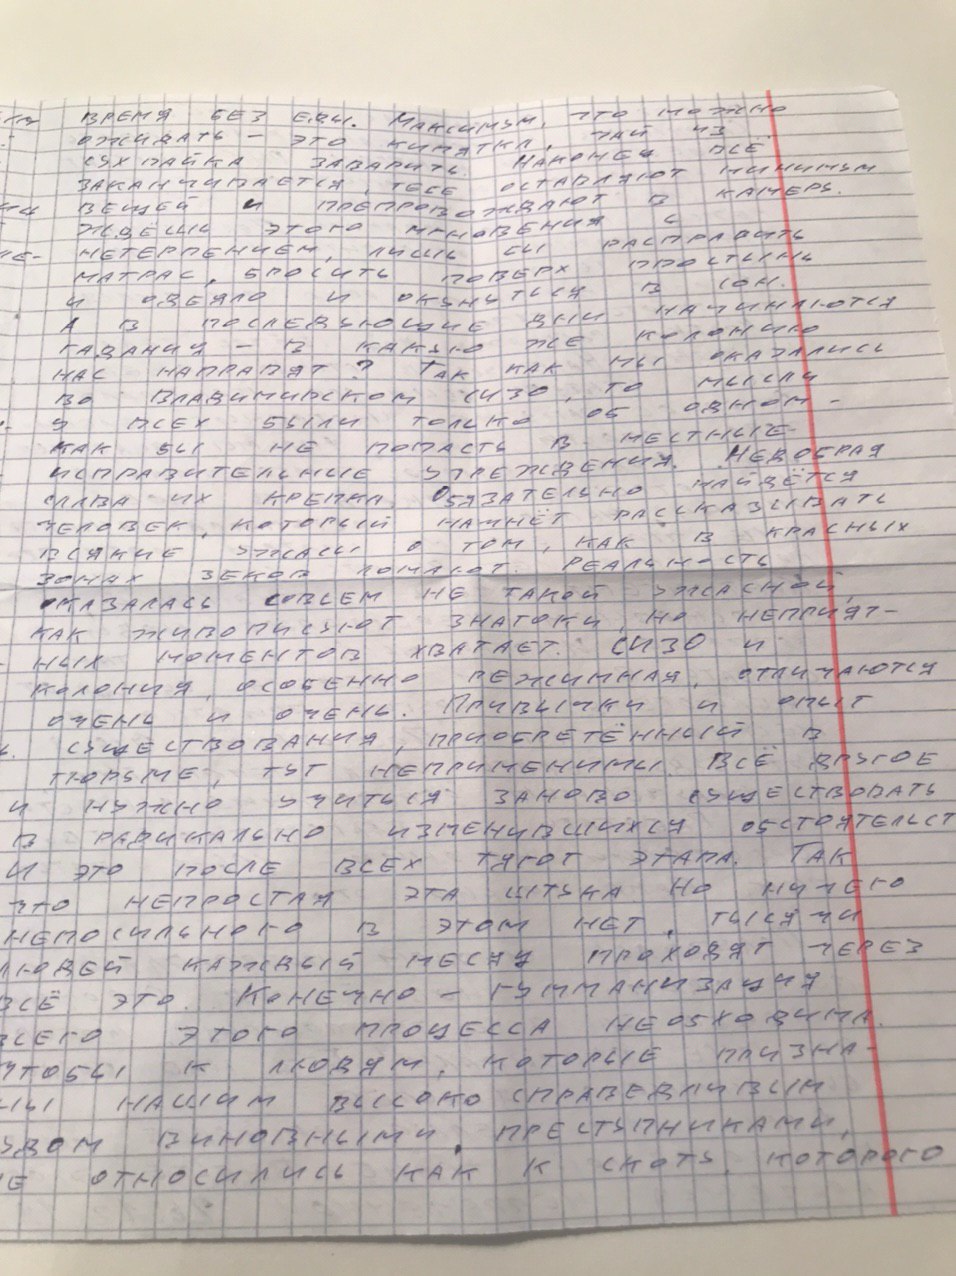 ВРЕМЯ БЕЗ ЕДЫ. МАКСИМУМ, ЧТО МОЖНО
ОЖИДАТЬ – ЭТО КИПЯТКА, ЧАЙ ИЗ
СУХПАЙКА ЗАВАРИТЬ. НАКОНЕЦ ВСЁ
ЗАКАНЧИВАЕТСЯ, ТЕБЕ ОСТАВЛЯЮТ МИНИМУМ
ВЕЩЕЙ И ПРЕПРОВОЖДАЮТ В КАМЕРУ.
ЖДЕШЬ ЭТОГО МГНОВЕНИЯ С
НЕТЕРПЕНИЕМ, ЛИШЬ БЫ РАСПРАВИТЬ
МАТРАС, БРОСИТЬ ПОВЕРХ ПРОСТЫНЬ
И ОДЕЯЛО И ОКУНУТЬСЯ В СОН.
А В ПОСЛЕДУЮЩИЕ ДНИ НАЧИНАЮТСЯ
ГАДАНИЯ – В КАКУЮ ЖЕ КОЛОНИЮ
НАС НАПРАВЯТ? ТАК КАК МЫ ОКАЗАЛИСЬ
ВО ВЛАДИМИРСКОМ СИЗО, ТО МЫСЛИ
У ВСЕХ БЫЛИ ТОЛЬКО ОБ ОДНОМ –
КАК БЫ НЕ ПОПАСТЬ В МЕСТНЫЕ
ИСПРАВИТЕЛЬНЫЕ УЧРЕЖДЕНИЯ. НЕДОБРАЯ
СЛАВА ИХ КРЕПКА. ОБЯЗАТЕЛЬНО НАЙДЁТСЯ
ЧЕЛОВЕК, КОТОРЫЙ НАЧНЁТ РАССКАЗЫВАТЬ
ВСЯКИЕ УЖАСЫ О ТОМ, КАК В КРАСНЫХ
ЗОНАХ ЗЕКОВ ЛОМАЮТ. РЕАЛЬНОСТЬ
ОКАЗАЛАСЬ СОВСЕМ НЕ ТАКОЙ УЖАСНОЙ,
КАК ЖИВОПИСУЮТ ЗНАТОКИ, НО НЕПРИЯТ-
НЫХ МОМЕНТОВ ХВАТАЕТ. СИЗО И
КОЛОНИЯ, ОСОБЕННО РЕЖИМНАЯ, ОТЛИЧАЮТСЯ
ОЧЕНЬ И ОЧЕНЬ. ПРИВЫЧКИ И ОПЫТ
СУЩЕСТВОВАНИЯ, ПРИОБРЕТЁННЫЙ В
ТЮРЬМЕ, ТУТ НЕПРИМЕНИМЫ. ВСЁ ДРУГОЕ
И НУЖНО УЧИТЬСЯ ЗАНОВО СУЩЕСТВОВАТЬ
В РАДИКАЛЬНО ИЗМЕНИВШИХСЯ ОБСТОЯТЕЛЬСТ
И ЭТО ПОСЛЕ ВСЕХ ТЯГОТ ЭТАПА. ТАК
ЧТО НЕПРОСТАЯ ЭТА ШТУКА НО НИЧЕГО
НЕПОСИЛЬНОГО В ЭТОМ НЕТ, ТЫСЯЧИ
ЛЮДЕЙ КАЖДЫЙ МЕСЯЦ ПРОХОДЯТ ЧЕРЕЗ
ВСЁ ЭТО. КОНЕЧНО – ГУММАНИЗАЦИЯ
ВСЕГО ЭТОГО ПРОЦЕССА НЕОБХОДИМА.
ЧТОБЫ К ЛЮДЯМ, КОТОРЫЕ ПРИЗНА-
НЫ НАШИМ ВЫСОКОСПРАВЕДЛИВЫМ
СУДОМ ВИНОВНЫМИ, ПРЕСТУПНИКАМИ,
НЕ ОТНОСИЛИСЬ КАК К СКОТУ, КОТОРОГО